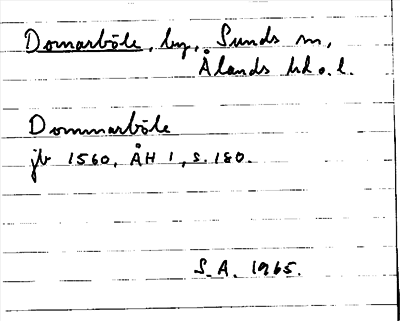 Domarböle, by, Sunds sn,
Ålands hd o. l.
Dommarböle
jb 1560, ÅH 1, s. 180.
S. A. 1965.